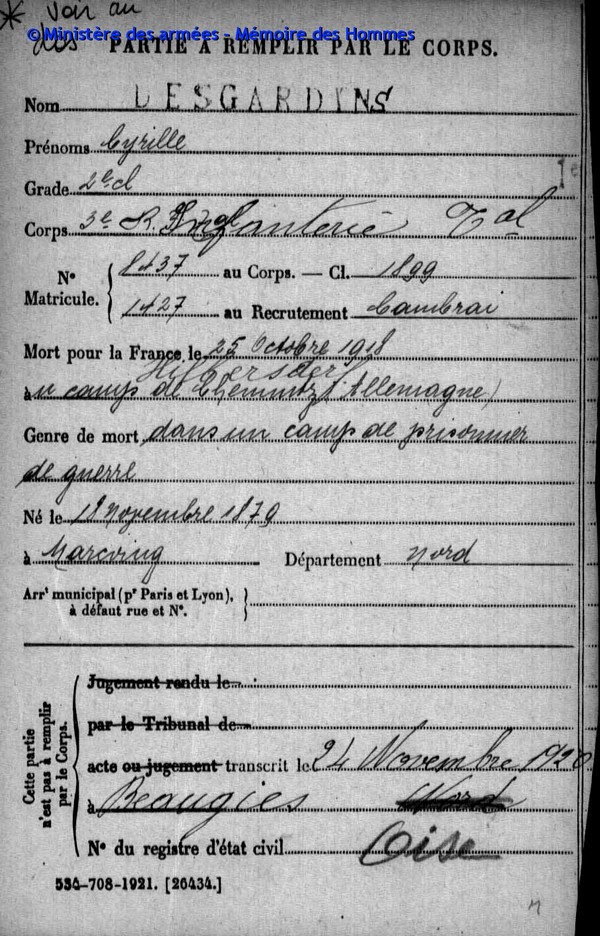 * Voir au
dos
© Ministère des armées - Mémoire des Hommes
PARTIE A REMPLIR PAR LE CORPS.
Nom DESGARDINS
Prénoms Cyrille
Grade 2e cl
Corps 3e R. Infanterie Tal
N° Matricule. { 8437 au Corps. — Cl. 1899
1427 au Recrutement Cambrai
Mort pour la France le 25 Octobre 1918
Hilbersdorf
au camp de Chemnitz (Allemagne)
Genre de mort dans un camp de prisonnier
de guerre
Né le 18 Novembre 1879
à Marcoing Département Nord
Arrt municipal (pr Paris et Lyon),
à défaut rue et N°. }
Cette partie
n'est pas à remplir
par le Corps.
Jugement rendu le
par le Tribunal de
acte ou jugement transcrit le 24 Novembre 1920
à Beaugies Nord
N° du registre d'état civil Oise
534-708-1921. [26434.]